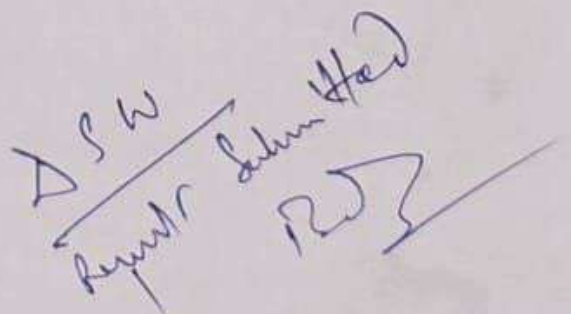 DSW
Report Submitted